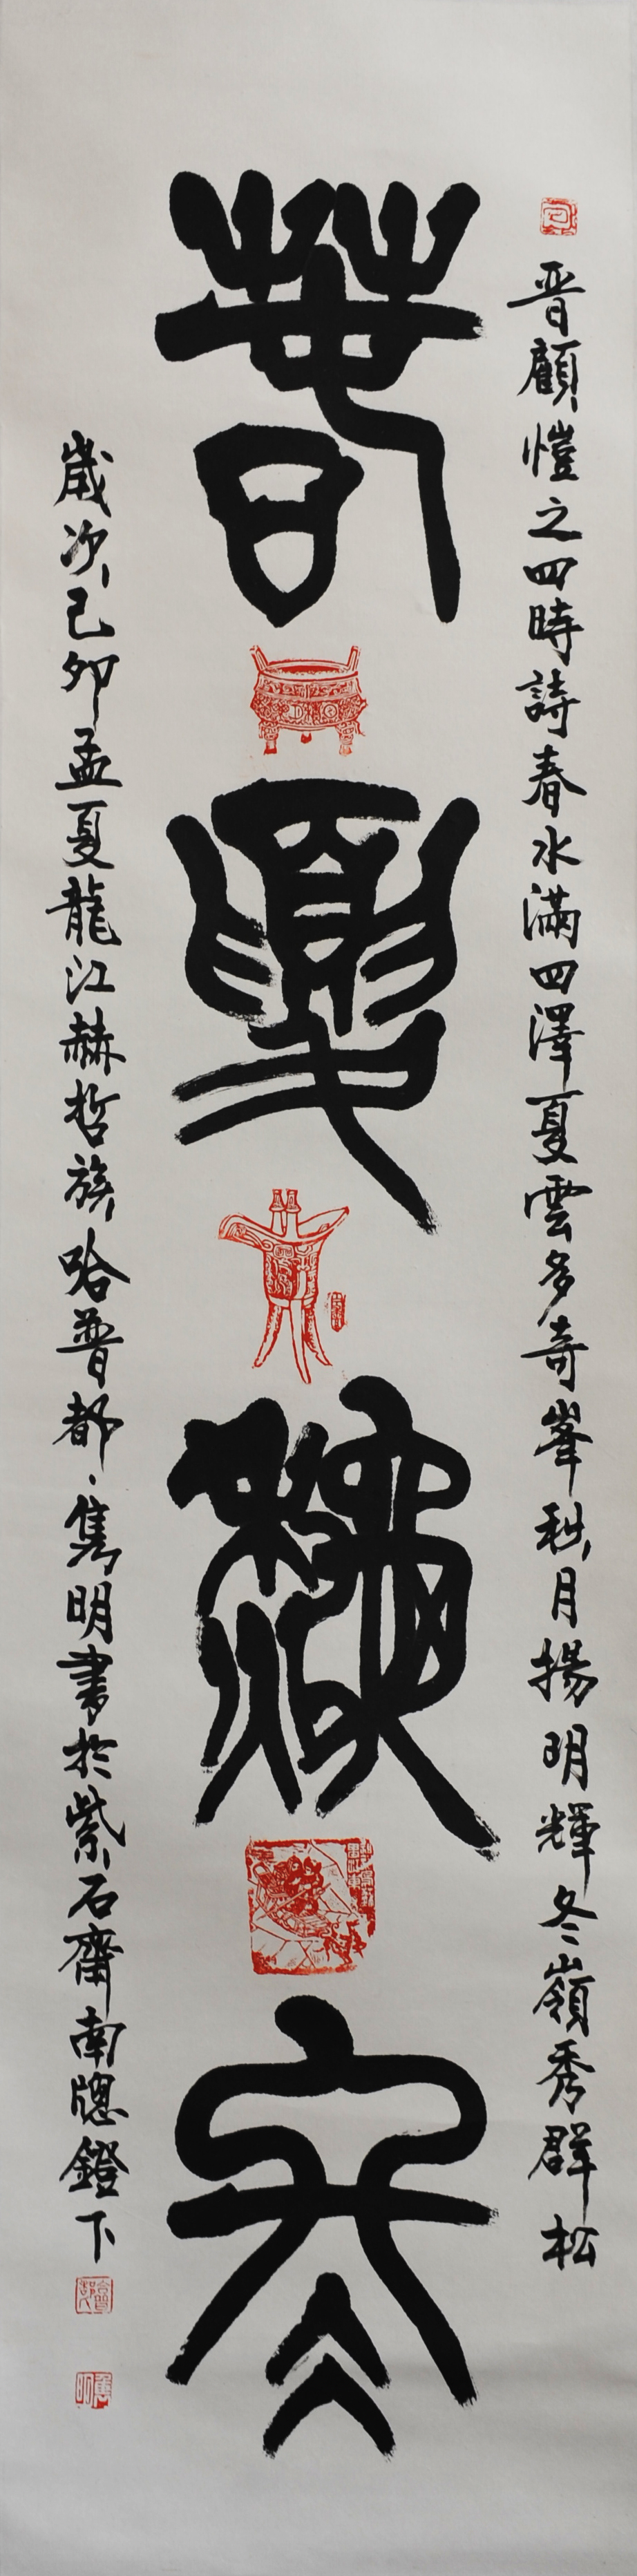 晋顧愷之四時詩春水滿四澤夏雲多奇峯秋月揚明輝冬嶺秀群松
春夏秋冬
歲次己卯孟夏龍江赫哲族哈普都·雋明書於紫石齋南牕鐙下